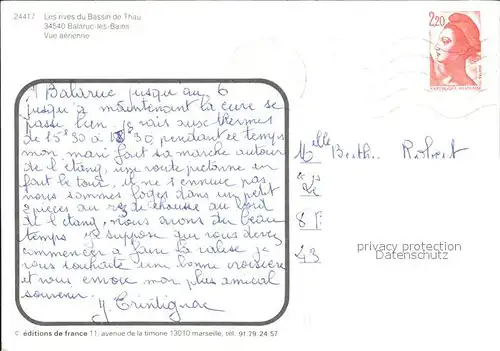 24417 Les rives du Bassin de Thau
34540 Balaruc-les-Bains
Vue aérienne
2,20
REPUBLIQUE FRANCAISE
Balaruc jusqu'au 6
jusqu'à maintenant la cure se
passe bien. je vais aux thermes
de 15h30 à 18h30, pendant ce temps
mon mari fait sa marche autour
de l'étang, une route piétonne en
fait le tour, il ne s'ennuie pas
nous sommes logés dans un petit
2 pièces au rez de chaussée au bord
de l'étang, nous avons du beau
temps je suppose que vous devez
commencer à faire la valise je
vous souhaite une bonne croisière
et vous envoie mon plus amical
souvenir.
Y. Trintignac
Melle Berthe Robert
43
privacy protection
Datenschutz
© éditions de france 11, avenue de la timone 13010 marseille, tél. 91.79.24.57